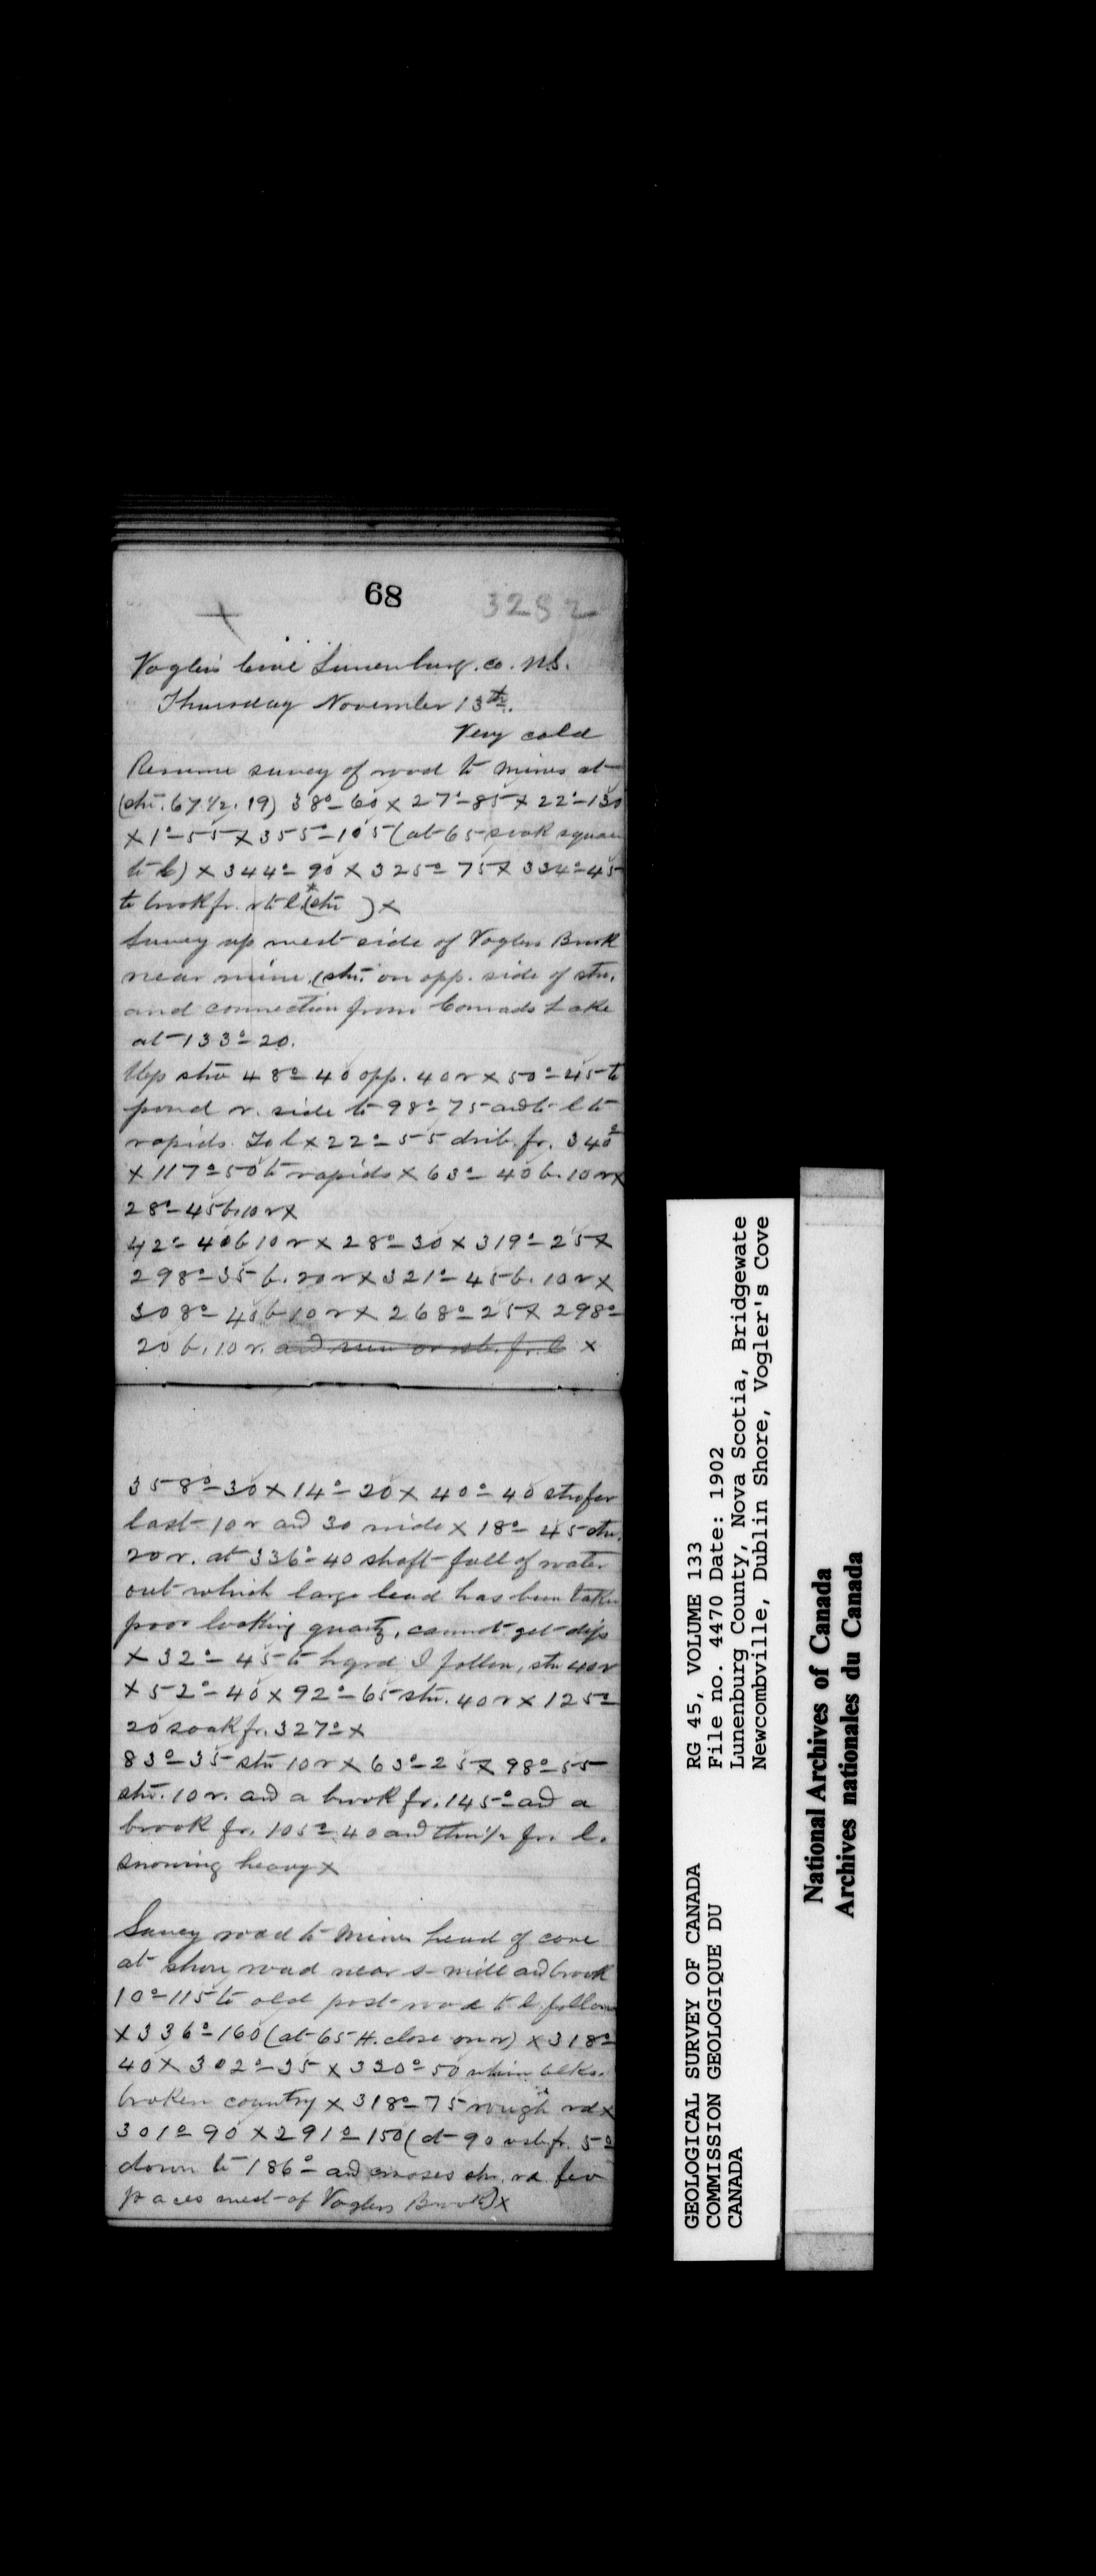 68
3282
Voglers Cove Lunenburg. co. N.S.
Thursday November 13th.
Very cold
Resume survey of road to mines at
(stn. 67 1/2. 19) 38°-60 x 27°-85 x 22°-130
x 1°-55 x 355°-105 (at 65 soak square
to l) x 344°-90 x 325°-75 x 334°-45
to brook fr. r to l (stn ) x
Survey up west side of Voglers Brook
near mine, (stn. on opp. side of stn.
and connection from Conrads Lake
at 133°-20.
Up stn 48°-40 opp. 40 r x 50°-45 to
pond r. side to 98°-75 and to l to
rapids. To l x 22°-55 drib. fr. 340°
x 117°-50 to rapids x 63°-40 b. 10 r x
28°-45 b 10 r x
42°-40 b 10 r x 28°-30 x 319°-25 x
298°-35 b. 20 r x 321°-45 b. 10 r x
308°-40 b 10 r x 268°-25 x 298°-
20 b. 10 r. and run or rsb. fr. l x
358°-30 x 14°-20 x 40°-40 stn for
last 10 r and 30 wide x 18°-45 stn.
20 r. at 336°-40 shaft full of water
out which large lead has been taken
poor looking quartz, cannot get dips
x 32°-45 to hyrd I follow, stn 40 r
x 52°-40 x 92°-65 stn. 40 r x 125°-
20 soak fr. 327° x
83°-35 stn 10 r x 63°-25 x 98°-55
stn. 10 r. and a brook fr. 145° and a
brook fr. 105°-40 and this 1/2 fr. l.
snowing heavy x
Survey road to mines head of cove
at shore road near s-mill and brook
10°-115 to old post road to l follow
x 336°-160 (at 65 H. close on r) x 318°-
40 x 302°-35 x 330°-50 whin blks.
broken country x 318°-75 rough rd x
301°-90 x 291°-150 (at 90 rsb fr. 5°
down to 186° and crosses shr. rd few
paces west of Voglers Brook) x
RG 45, VOLUME 133
File no. 4470 Date: 1902
Lunenburg County, Nova Scotia, Bridgewate
Newcombville, Dublin Shore, Vogler's Cove
GEOLOGICAL SURVEY OF CANADA
COMMISSION GEOLOGIQUE DU
CANADA
National Archives of Canada
Archives nationales du Canada